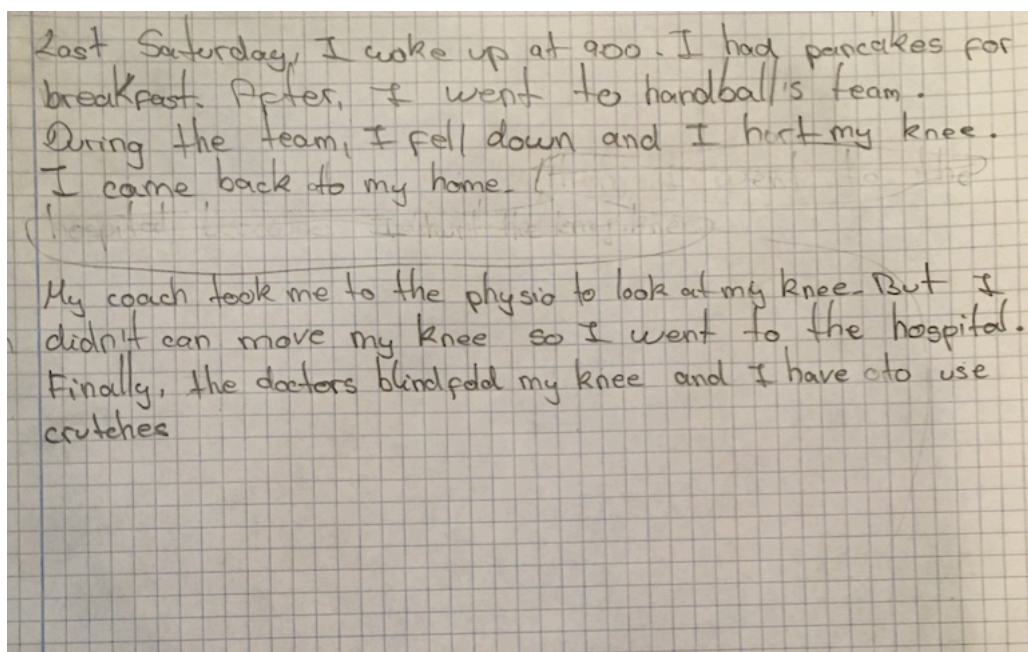 Last Saturday, I woke up at 900. I had pancakes for
breakfast. After, I went to handball's team.
During the team, I fell down and I hurt my knee.
I came back to my home.
hospital
My coach took me to the physio to look at my knee. But I
didn't can move my knee so I went to the hospital.
Finally, the doctors blindfold my knee and I have to use
crutches